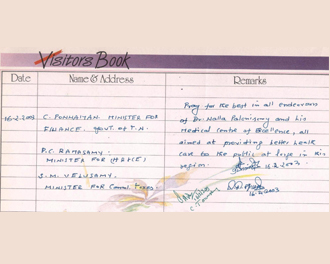 Visitors Book
Date Name & Address Remarks
16.2.2003 C. PONNAIYAN. MINISTER FOR
FINANCE. GOVT. OF T.N.
P.C. RAMASAMY.
MINISTER FOR (HR&CE)
S.M. VELUSAMY.
MINISTER FOR Comml. Taxes
Pray for the best in all endeavours
of Dr. Nalla Palaniswamy and his
Medical Centre of Excellence, all
aimed at providing better health
care to the public at large in this
region.
16.2.2003
16.2.2003